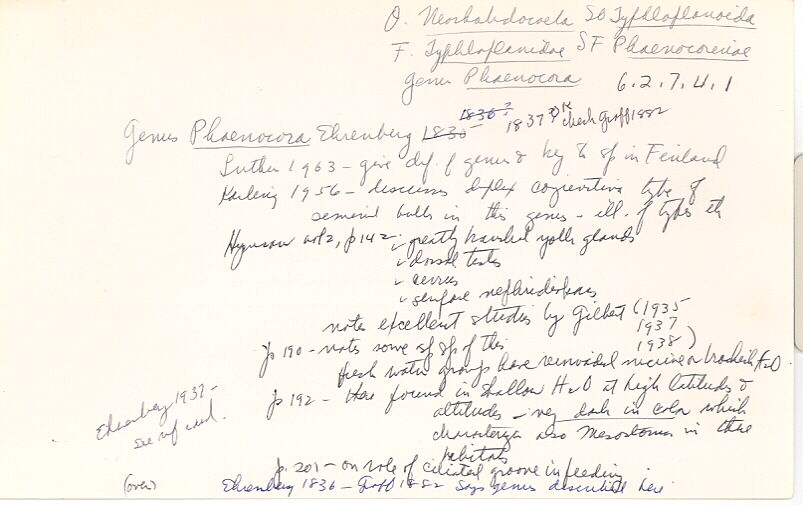 O. Neorhabdocoela SO Typhloplanoida
F. Typhloplanidae SF Phaenocorinae
genus Phaenocora 6.2.7.4.1
Genus Phaenocora Ehrenberg 1835 1836? 1837? OK check Graff 1882
Luther 1963 - give def. of genus & key to sp in Finland
Karling 1956 - discusses duplex type of
seminal bulbs in this genus - ill. of types etc
Hyman vol 2, p 142 - greatly branched yolk glands
dorsal testes
cirrus
surface nephridiopores
notes excellent studies by Gilbert (1935
1937
1938)
p 190 - notes some sp of this
fresh water group have reinvaded marine or brackish H2O.
p 192 - Here found in shallow H2O at high latitudes &
altitudes - very dark in color which
characterizes also Mesostoma in these
habitats
p. 201 - on role of ciliated groove in feeding
Ehrenberg 1937 -
see ref card.
(over) Ehrenberg 1836 - Graff 1882 says genus described here